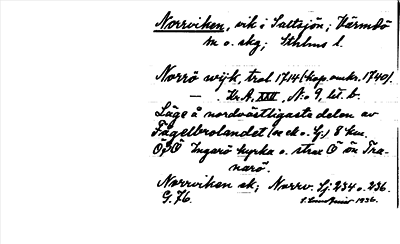 Norrviken, vik i Saltsjön; Värmdö
m o. skg; Sthlms l.
Norrö wijk, trol 1714 (kop. omkr. 1740).
— . Kr. A. XXII, No 9, lit. b.
Läge å nordvästligaste delen av
Fågelbrolandet (ek o. Gj) 8 km.
ÖSÖ Ingarö kyrka o. strax Ö ön Tra-
narö.
Norrviken ek; Norrv. Gj: 234 o. 236.
G. 76. 1936.